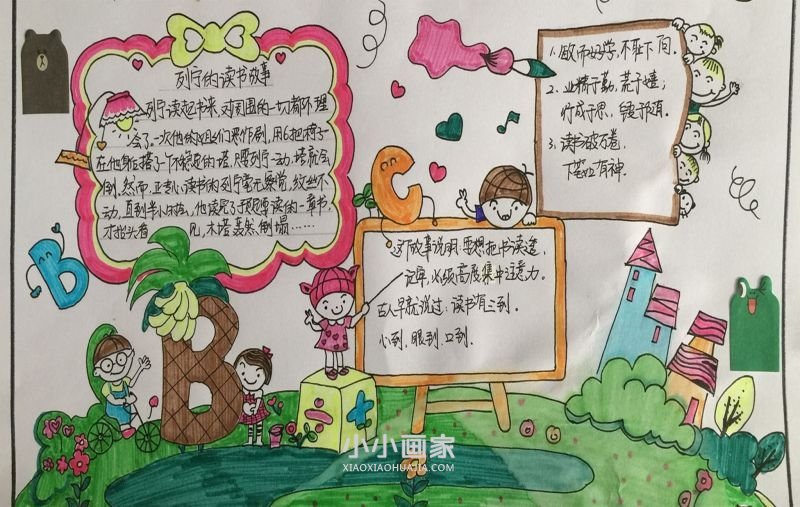 列宁的读书故事
列宁读起书来，对周围的一切都不理
会了。一次他的姐姐们恶作剧，用6把椅子
在他身后搭了一个不稳定的塔，只要列宁一动，塔就会
倒。然而，正专心读书的列宁毫无察觉，纹丝不
动。直到半小时后，他读完了预定要读的一章书，
才抬头看 见，木塔轰然倒塌……
1. 敏而好学，不耻下问。
2. 业精于勤，荒于嬉；
行成于思，毁于随。
3. 读书破万卷，
下笔如有神。
这个故事说明：要想把书读进，
记牢，必须高度集中注意力。
古人早就说过：读书有三到。
心到、眼到、口到。
B
C
B
小小画家
XIAOXIAOHUAJIA.COM